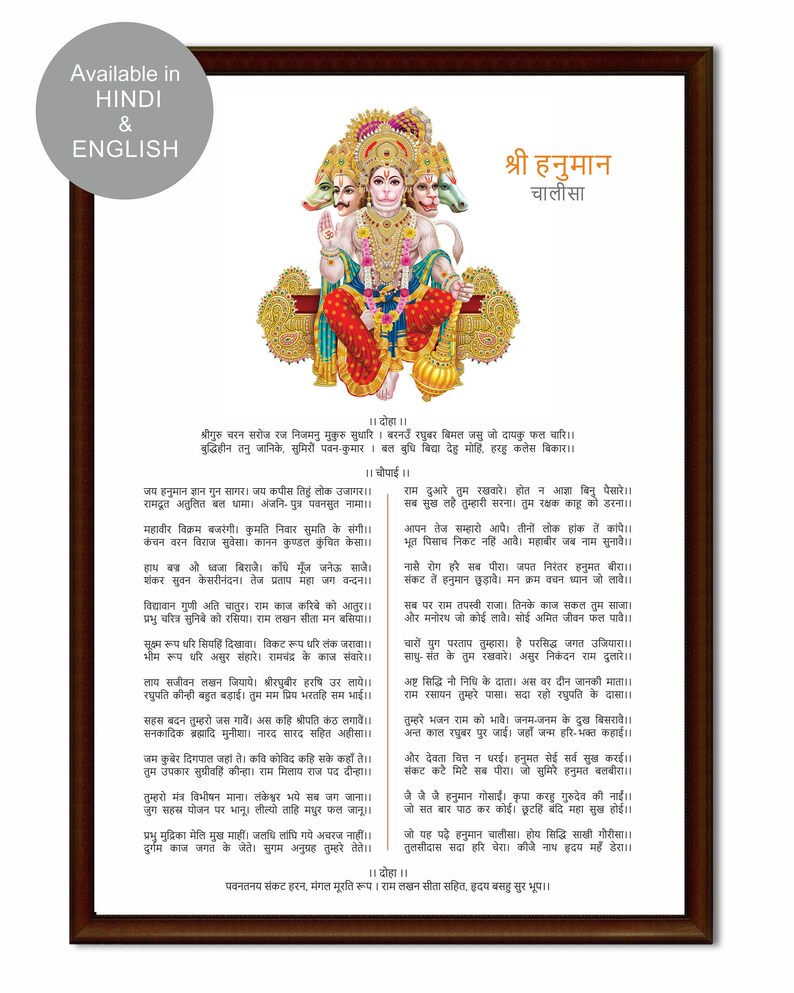 Available in
HINDI
&
ENGLISH
श्री हनुमान
चालीसा
।। दोहा ।।
श्रीगुरु चरन सरोज रज निजमनु मुकुरु सुधारि । बरनउँ रघुबर बिमल जसु जो दायकु फल चारि।।
बुद्धिहीन तनु जानिके, सुमिरौं पवन-कुमार । बल बुधि बिद्या देहु मोहिं, हरहु कलेस बिकार।।
।। चौपाई ।।
जय हनुमान ज्ञान गुन सागर। जय कपीस तिहुं लोक उजागर।।
रामदूत अतुलित बल धामा। अंजनि- पुत्र पवनसुत नामा।।
महावीर विक्रम बजरंगी। कुमति निवार सुमति के संगी।।
कंचन वरन विराज सुवेसा। कानन कुण्डल कुंचित केसा।।
हाथ बज्र औ ध्वजा बिराजै। काँधे मूँज जनेऊ साजै।
शंकर सुवन केसरीनंदन। तेज प्रताप महा जग वन्दन।।
विद्यावान गुणी अति चातुर। राम काज करिबे को आतुर।।
प्रभु चरित्र सुनिबे को रसिया। राम लखन सीता मन बसिया।।
सूक्ष्म रूप धरि सियहिं दिखावा। विकट रूप धरि लंक जरावा।।
भीम रूप धरि असुर संहारे। रामचंद्र के काज संवारे।।
लाय सजीवन लखन जियाये। श्रीरघुबीर हरषि उर लाये।।
रघुपति कीन्ही बहुत बड़ाई। तुम मम प्रिय भरतहि सम भाई।।
सहस बदन तुम्हरो जस गावैं। अस कहि श्रीपति कंठ लगावैं।।
सनकादिक ब्रह्मादि मुनीशा। नारद सारद सहित अहीसा।।
जम कुबेर दिगपाल जहां ते। कवि कोविद कहि सके कहाँ ते।।
तुम उपकार सुग्रीवहिं कीन्हा। राम मिलाय राज पद दीन्हा।।
तुम्हरो मंत्र विभीषन माना। लंकेश्वर भये सब जग जाना।।
जुग सहस्र योजन पर भानू। लील्यो ताहि मधुर फल जानू।।
प्रभु मुद्रिका मेलि मुख माहीं। जलधि लांघि गये अचरज नाहीं।।
दुर्गम काज जगत के जेते। सुगम अनुग्रह तुम्हरे तेते।।
राम दुआरे तुम रखवारे। होत न आज्ञा बिनु पैसारे।।
सब सुख लहै तुम्हारी सरना। तुम रक्षक काहू को डरना।।
आपन तेज सम्हारो आपै। तीनों लोक हांक तें कांपै।।
भूत पिसाच निकट नहिं आवै। महाबीर जब नाम सुनावै।।
नासै रोग हरै सब पीरा। जपत निरंतर हनुमत बीरा।।
संकट तें हनुमान छुड़ावै। मन क्रम वचन ध्यान जो लावै।।
सब पर राम तपस्वी राजा। तिनके काज सकल तुम साजा।
और मनोरथ जो कोई लावै। सोई अमित जीवन फल पावै।।
चारों युग परताप तुम्हारा। है परसिद्ध जगत उजियारा।।
साधु-संत के तुम रखवारे। असुर निकंदन राम दुलारे।।
अष्ट सिद्धि नौ निधि के दाता। अस वर दीन जानकी माता।।
राम रसायन तुम्हरे पासा। सदा रहो रघुपति के दासा।।
तुम्हरे भजन राम को भावै। जनम-जनम के दुख बिसरावै।।
अन्त काल रघुबर पुर जाई। जहाँ जन्म हरि-भक्त कहाई।।
और देवता चित्त न धरई। हनुमत सेई सर्व सुख करई।।
संकट कटै मिटै सब पीरा। जो सुमिरै हनुमत बलबीरा।।
जै जै जै हनुमान गोसाईं। कृपा करहु गुरुदेव की नाईं।।
जो सत बार पाठ कर कोई। छूटहिं बंदि महा सुख होई।।
जो यह पढ़े हनुमान चालीसा। होय सिद्धि साखी गोरीसा।।
तुलसीदास सदा हरि चेरा। कीजै नाथ हृदय महँ डेरा।।
।। दोहा ।।
पवनतनय संकट हरन, मंगल मूरति रूप । राम लखन सीता सहित, हृदय बसहु सुर भूप।।